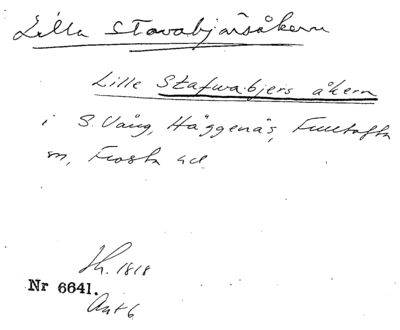 Lilla Stavabjärsåkern
Lille Stafwabjers åkern
i S. Vång, Häggenäs, Fulltofta
sn, Frosta hd
Sk. 1818
Nr 6641.
Akt 6